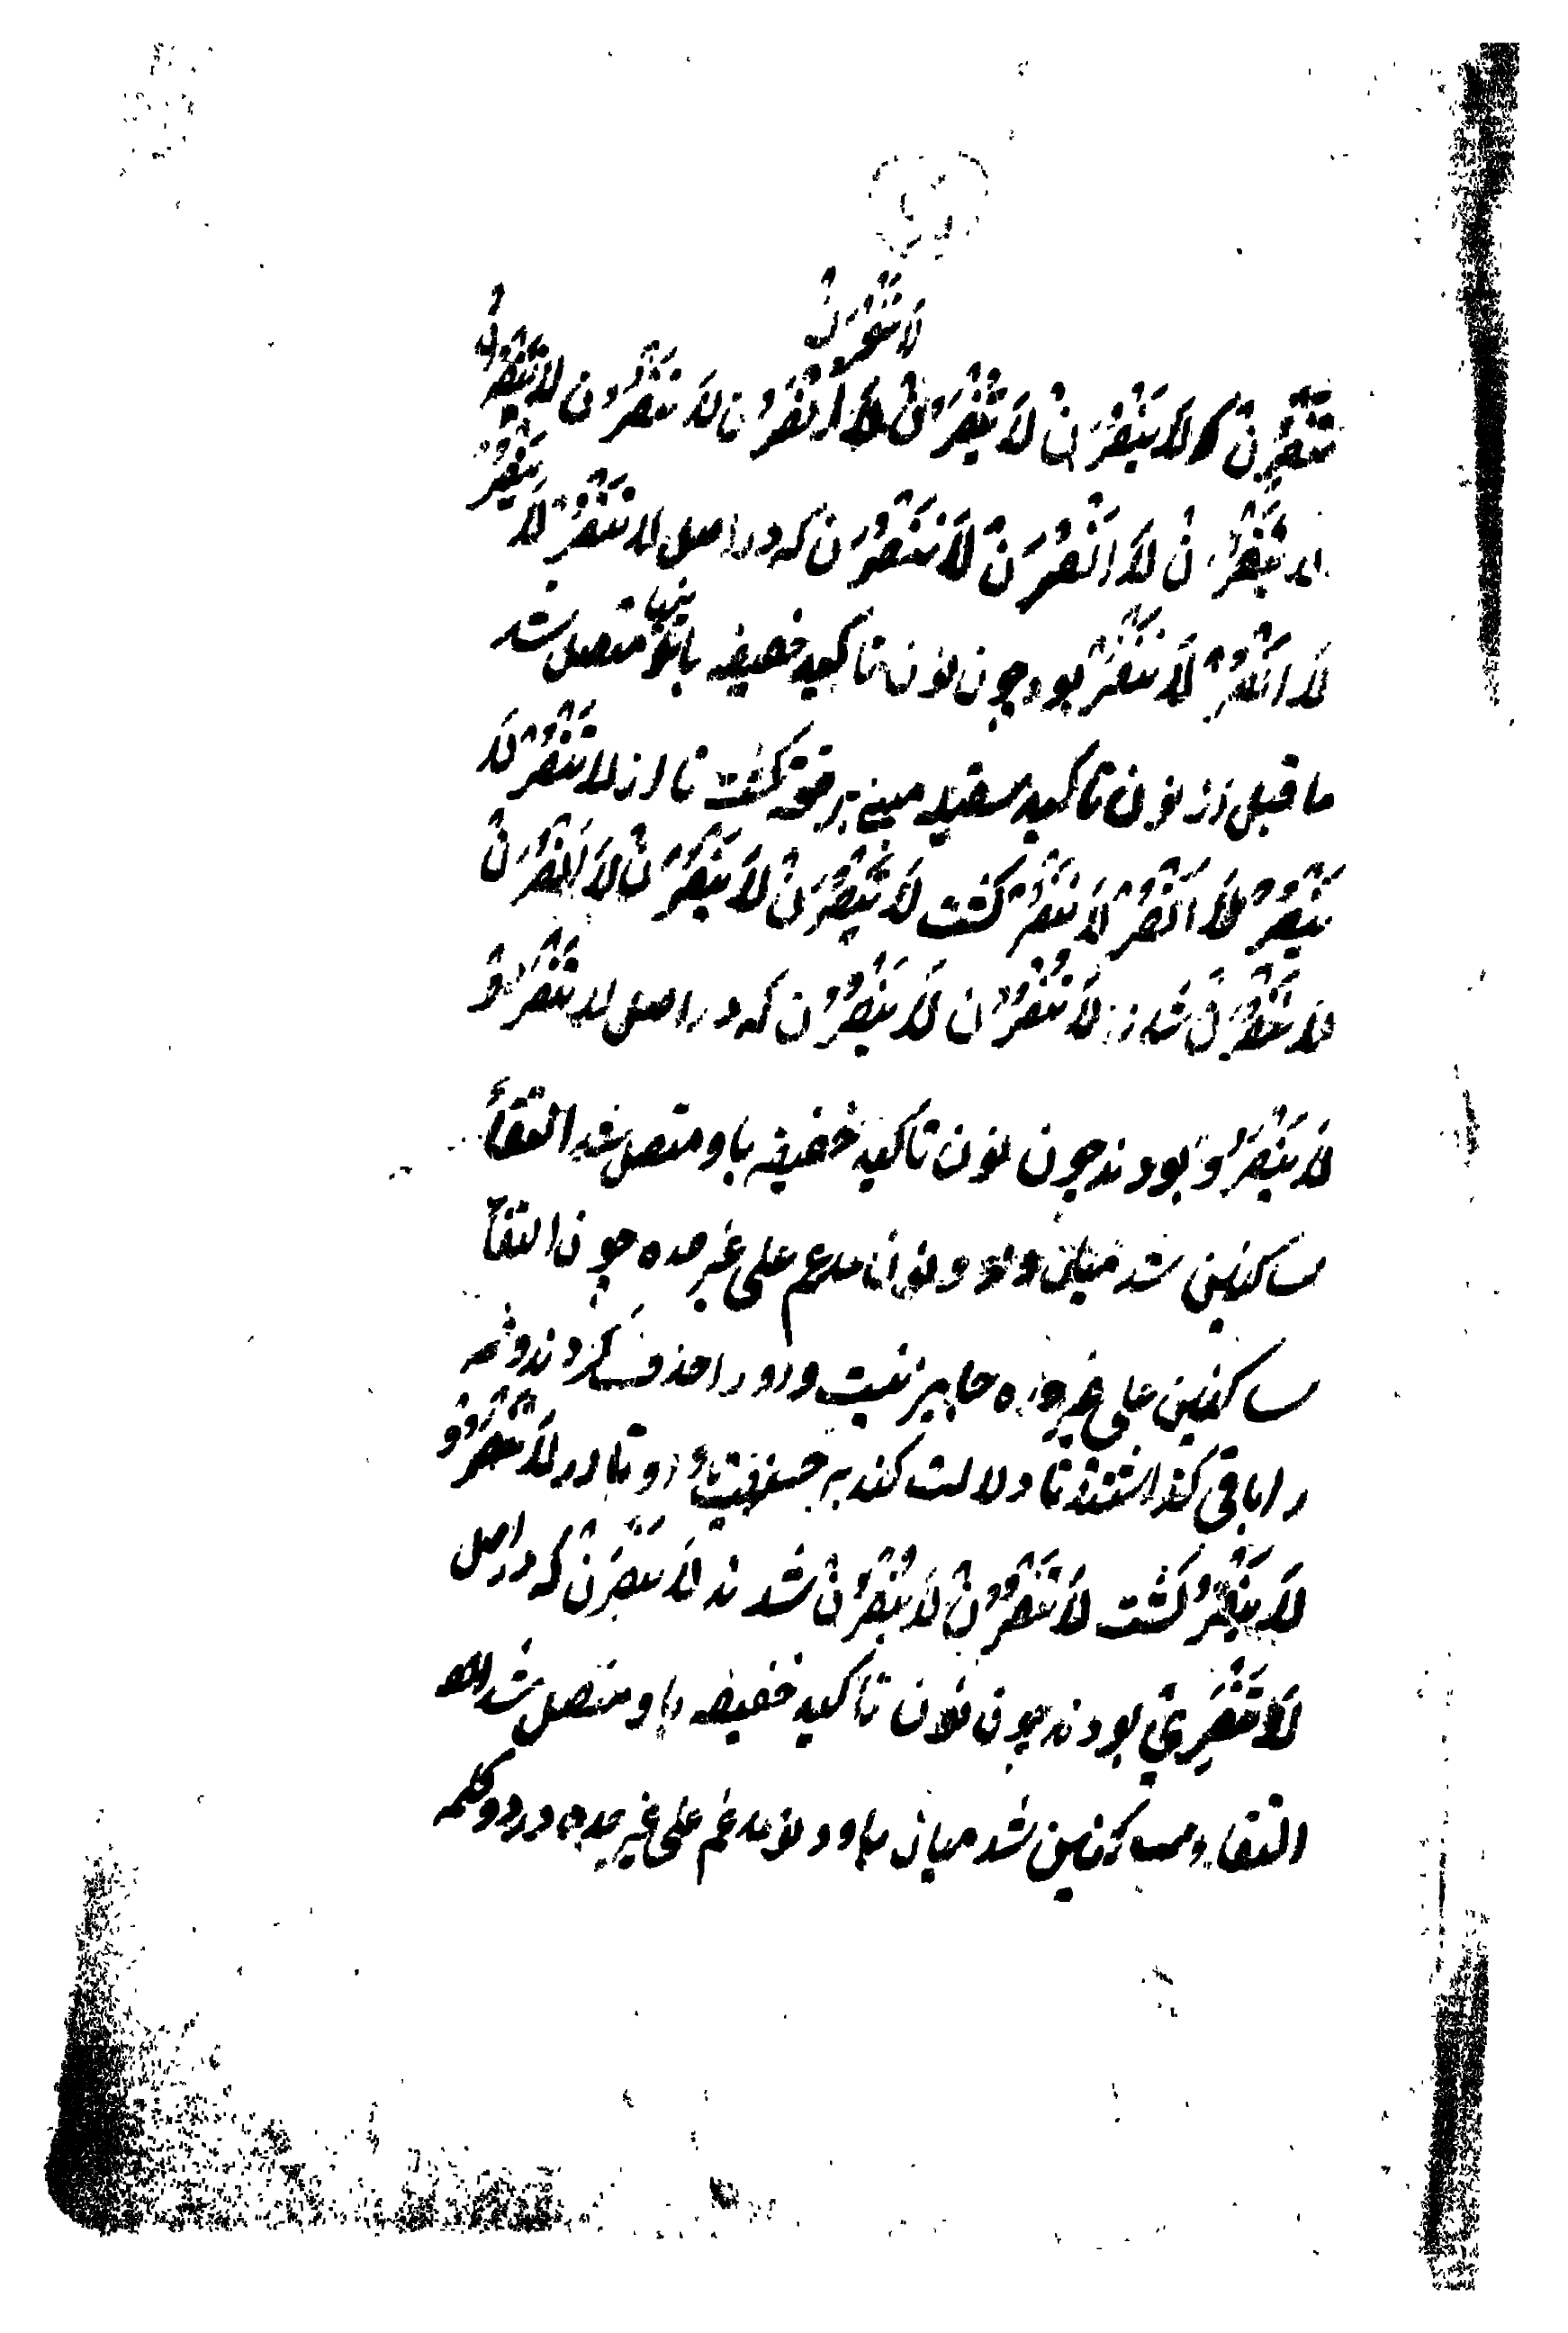 لَا تَنْصُرَنْ
تَنْصُرِنْ لَا يَنْصُرَنْ لَا يَنْصُرُنْ لَا اَنْصُرَنْ لَا نَنْصُرَنْ لَا تَنْصُرَنْ
لا يَنْصُرَنْ لَا اَنْصُرَنْ لَا نَنْصُرَنْ که در اصل لا تَنْصُرْ لَا يَنْصُرْ
لَا اَنْصُرْ لَا نَنْصُرْ بود چون نون تاکید خفیفه باینها متصل شد
ما قبل از نون تاکید ثقیله مبنی بر فتح گشت تا از لا تَنْصُرْ لَا
يَنْصُرْ لَا اَنْصُرْ لَا نَنْصُرْ گشت لَا تَنْصُرَنْ لَا يَنْصُرَنْ لَا اَنْصُرَنْ
لا نَنْصُرَنْ شد لَا تَنْصُرُنْ لَا يَنْصُرُنْ که در اصل لا تَنْصُرُوْ
لَا يَنْصُرُوْ بودند چون نون تاکید خفیفه باو متصل شد التقاء
ساکنین شد میان واو و نون مدغم علی غیر حده چون التقاء
ساکنین علی غیر حده جایز نیست واو را حذف کردند و ضمه
را باقی گذاشتند تا دلالت کند بر حذفیت واو تا از لَا تَنْصُرُوْ
لَا يَنْصُرُ گشت لَا تَنْصُرُنْ لَا يَنْصُرُنْ شدند لَا تَنْصُرِنْ که در اصل
لَا تَنْصُرِيْ بودند چون نون تاکید خفیفه باو متصل شد
التقاء ساکنین شد میان یا و نون مدغم علی غیر حده در دو کلمه